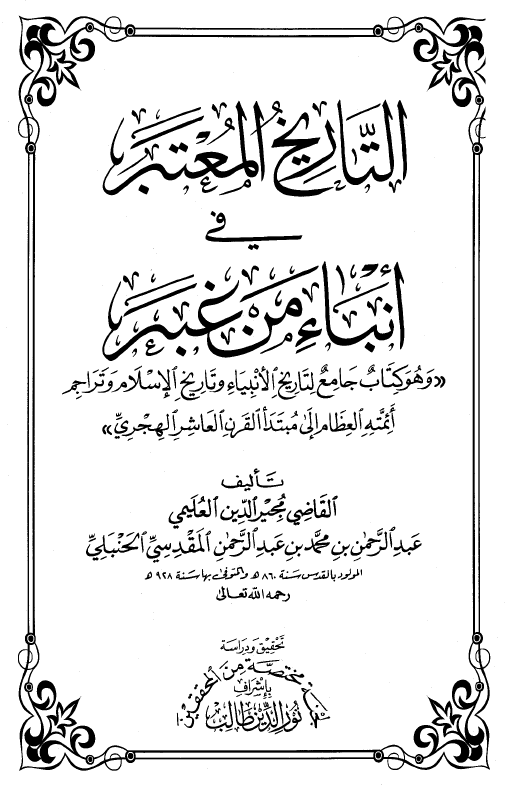 التَّارِيخُ المُعْتَبَر
في
أَنْبَاءِ مَنْ غَبَرَ
«وَهُوَ كِتَابٌ جَامِعٌ لِتَارِيخِ الأَنْبِيَاءِ وَتَارِيخِ الإِسْلَامِ وَتَرَاجِمِ
أَئِمَّتِهِ العِظَامِ إِلَى مُبْتَدَأِ القَرْنِ العَاشِرِ الهِجْرِيِّ»
تَأليف
القَاضِي مُجِيْرِ الدِّين العُلَيْمي
عَبدِ الرَّحْمٰنِ بنِ مُحَمَّد بنِ عَبدِ الرَّحْمٰنِ المَقْدِسِيِّ الحَنْبَلِيِّ
المولود بالقدس سَنة ٨٦٠ هـ والمتوفى بها سَنة ٩٢٨ هـ
رحمه الله تعالى
تَحقِيق وَدِرَاسَة
لجنة مختصّة مِنَ المحققين
بإشراف
نُورُ الدِّين طَالِب